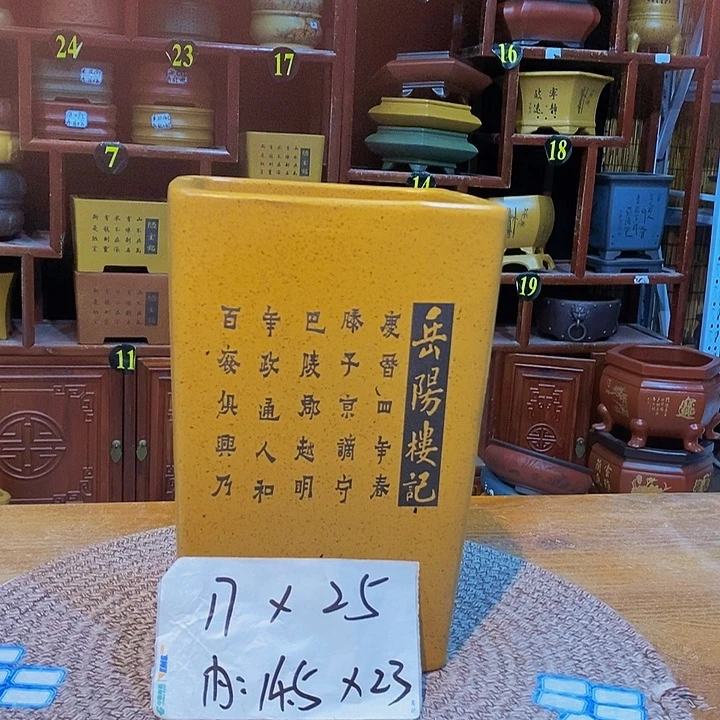 岳陽樓記
慶曆四年春
滕子京謫守
巴陵郡越明
年政通人和
百廢俱興乃
17 x 25
内: 14.5 x 23
24
23
17
16
7
18
14
19
11